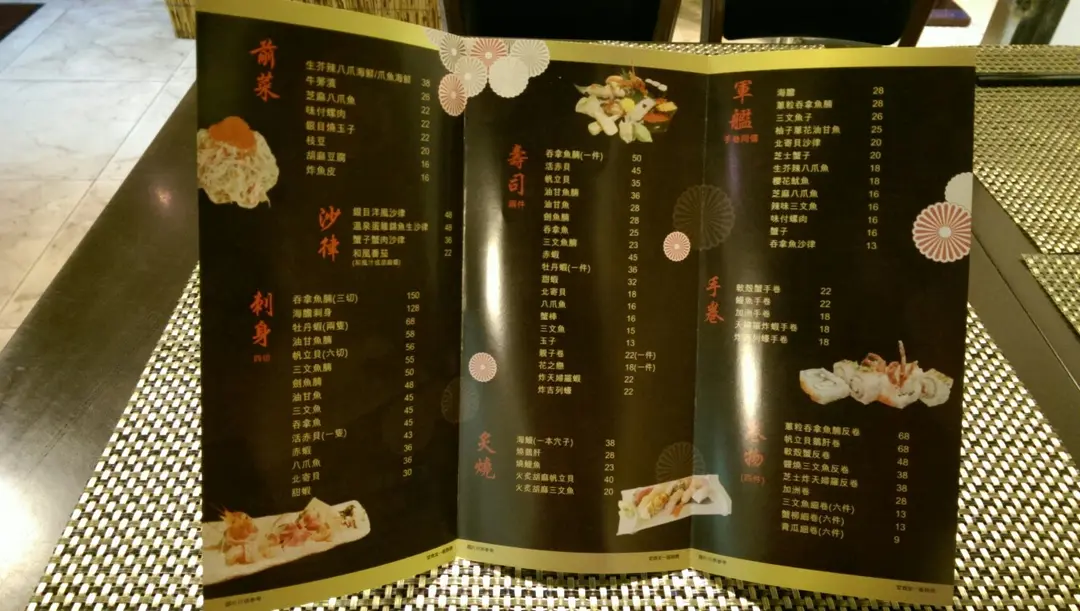 前菜
生芥辣八爪海鮮/爪魚海鮮 38
牛蒡漬 26
芝麻八爪魚 22
味付螺肉 22
銀目燒玉子 22
枝豆 20
胡麻豆腐 16
炸魚皮 16
沙律
銀目洋風沙律 48
溫泉蛋雜錦魚生沙律 48
蟹子蟹肉沙律 36
和風番茄 22
刺身
四切
吞拿魚腩(三切) 150
海膽刺身 128
牡丹蝦(兩隻) 68
油甘魚腩 58
帆立貝(六切) 56
三文魚腩 55
劍魚腩 50
油甘魚 48
三文魚 45
吞拿魚 45
活赤貝(一隻) 45
赤蝦 43
八爪魚 36
北寄貝 36
甜蝦 30
壽司
兩件
吞拿魚腩(一件) 50
活赤貝 45
帆立貝 35
油甘魚腩 36
油甘魚 28
劍魚腩 28
吞拿魚 25
三文魚腩 23
赤蝦 45
牡丹蝦(一件) 36
甜蝦 32
北寄貝 18
八爪魚 16
蟹柳 16
三文魚 15
玉子 13
親子卷 22(一件)
花之戀 18(一件)
炸天婦羅蝦 22
炸吉列蠔 22
炙燒
海鰻(一本穴子) 38
燒鵝肝 28
燒鰻魚 23
火炙胡麻帆立貝 40
火炙胡麻三文魚 20
軍艦
海膽 28
蔥粒吞拿魚腩 28
三文魚子 26
柚子蔥花油甘魚 25
北寄貝沙律 20
芝士蟹子 20
生芥辣八爪魚 18
櫻花魷魚 18
芝麻八爪魚 16
辣味三文魚 16
味付螺肉 16
蟹子 16
吞拿魚沙律 13
手卷
軟殼蟹手卷 22
鰻魚手卷 22
加洲手卷 18
天婦羅炸蝦手卷 18
炸吉列蠔手卷 18
卷物
(四件)
蔥粒吞拿魚腩反卷 68
帆立貝鵝肝卷 68
軟殼蟹反卷 48
鰻燒三文魚反卷 38
芝士炸天婦羅反卷 38
加洲卷 28
三文魚細卷(六件) 13
蟹柳細卷(六件) 13
青瓜細卷(六件) 9